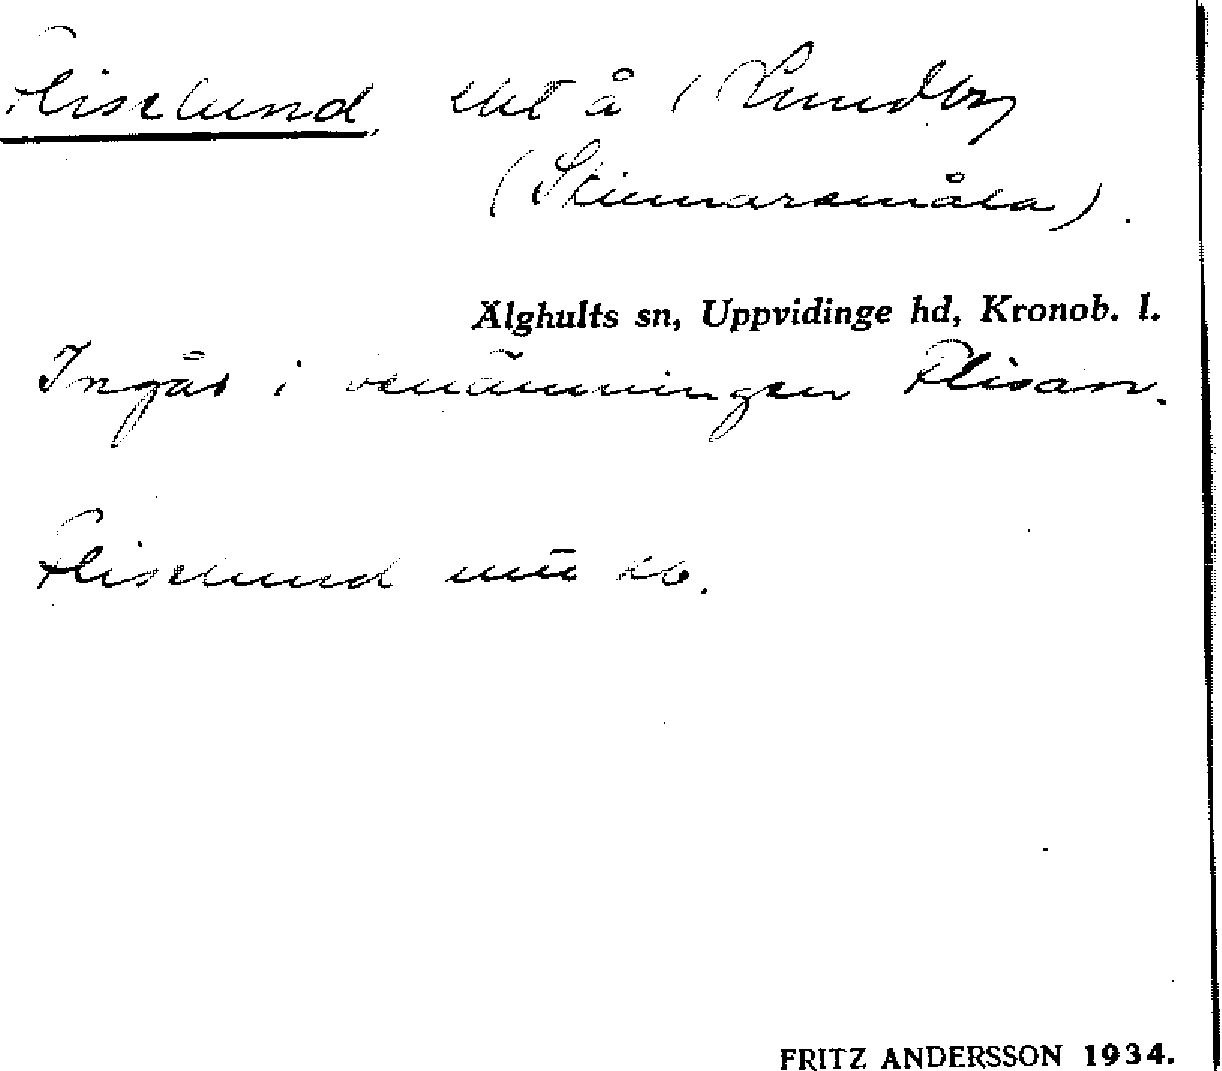 Fliselund, sht å 1 Lundby
(Stinnarsmåla).
Älghults sn, Uppvidinge hd, Kronob. l.
Ingår i benämningen Flisan.
Fliselund
FRITZ ANDERSSON 1934.